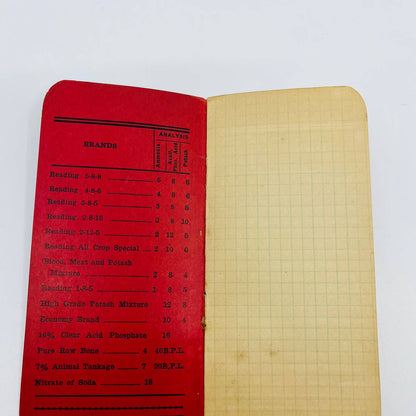 BRANDS
ANALYSIS
Ammonia
Avail. Phos. Acid
Potash
Reading 5-8-8 5 8 8
Reading 4-8-6 4 8 6
Reading 3-8-5 3 8 5
Reading 2-8-10 2 8 10
Reading 2-12-5 2 12 5
Reading All Crop Special 2 10 6
Blood, Meat and Potash
Mixture 2 8 4
Reading 1-8-5 1 8 5
High Grade Potash Mixture 12 8
Economy Brand 10 4
16% Clear Acid Phosphate 16
Pure Raw Bone 4 46B.P.L.
7% Animal Tankage 7 20B.P.L.
Nitrate of Soda 18